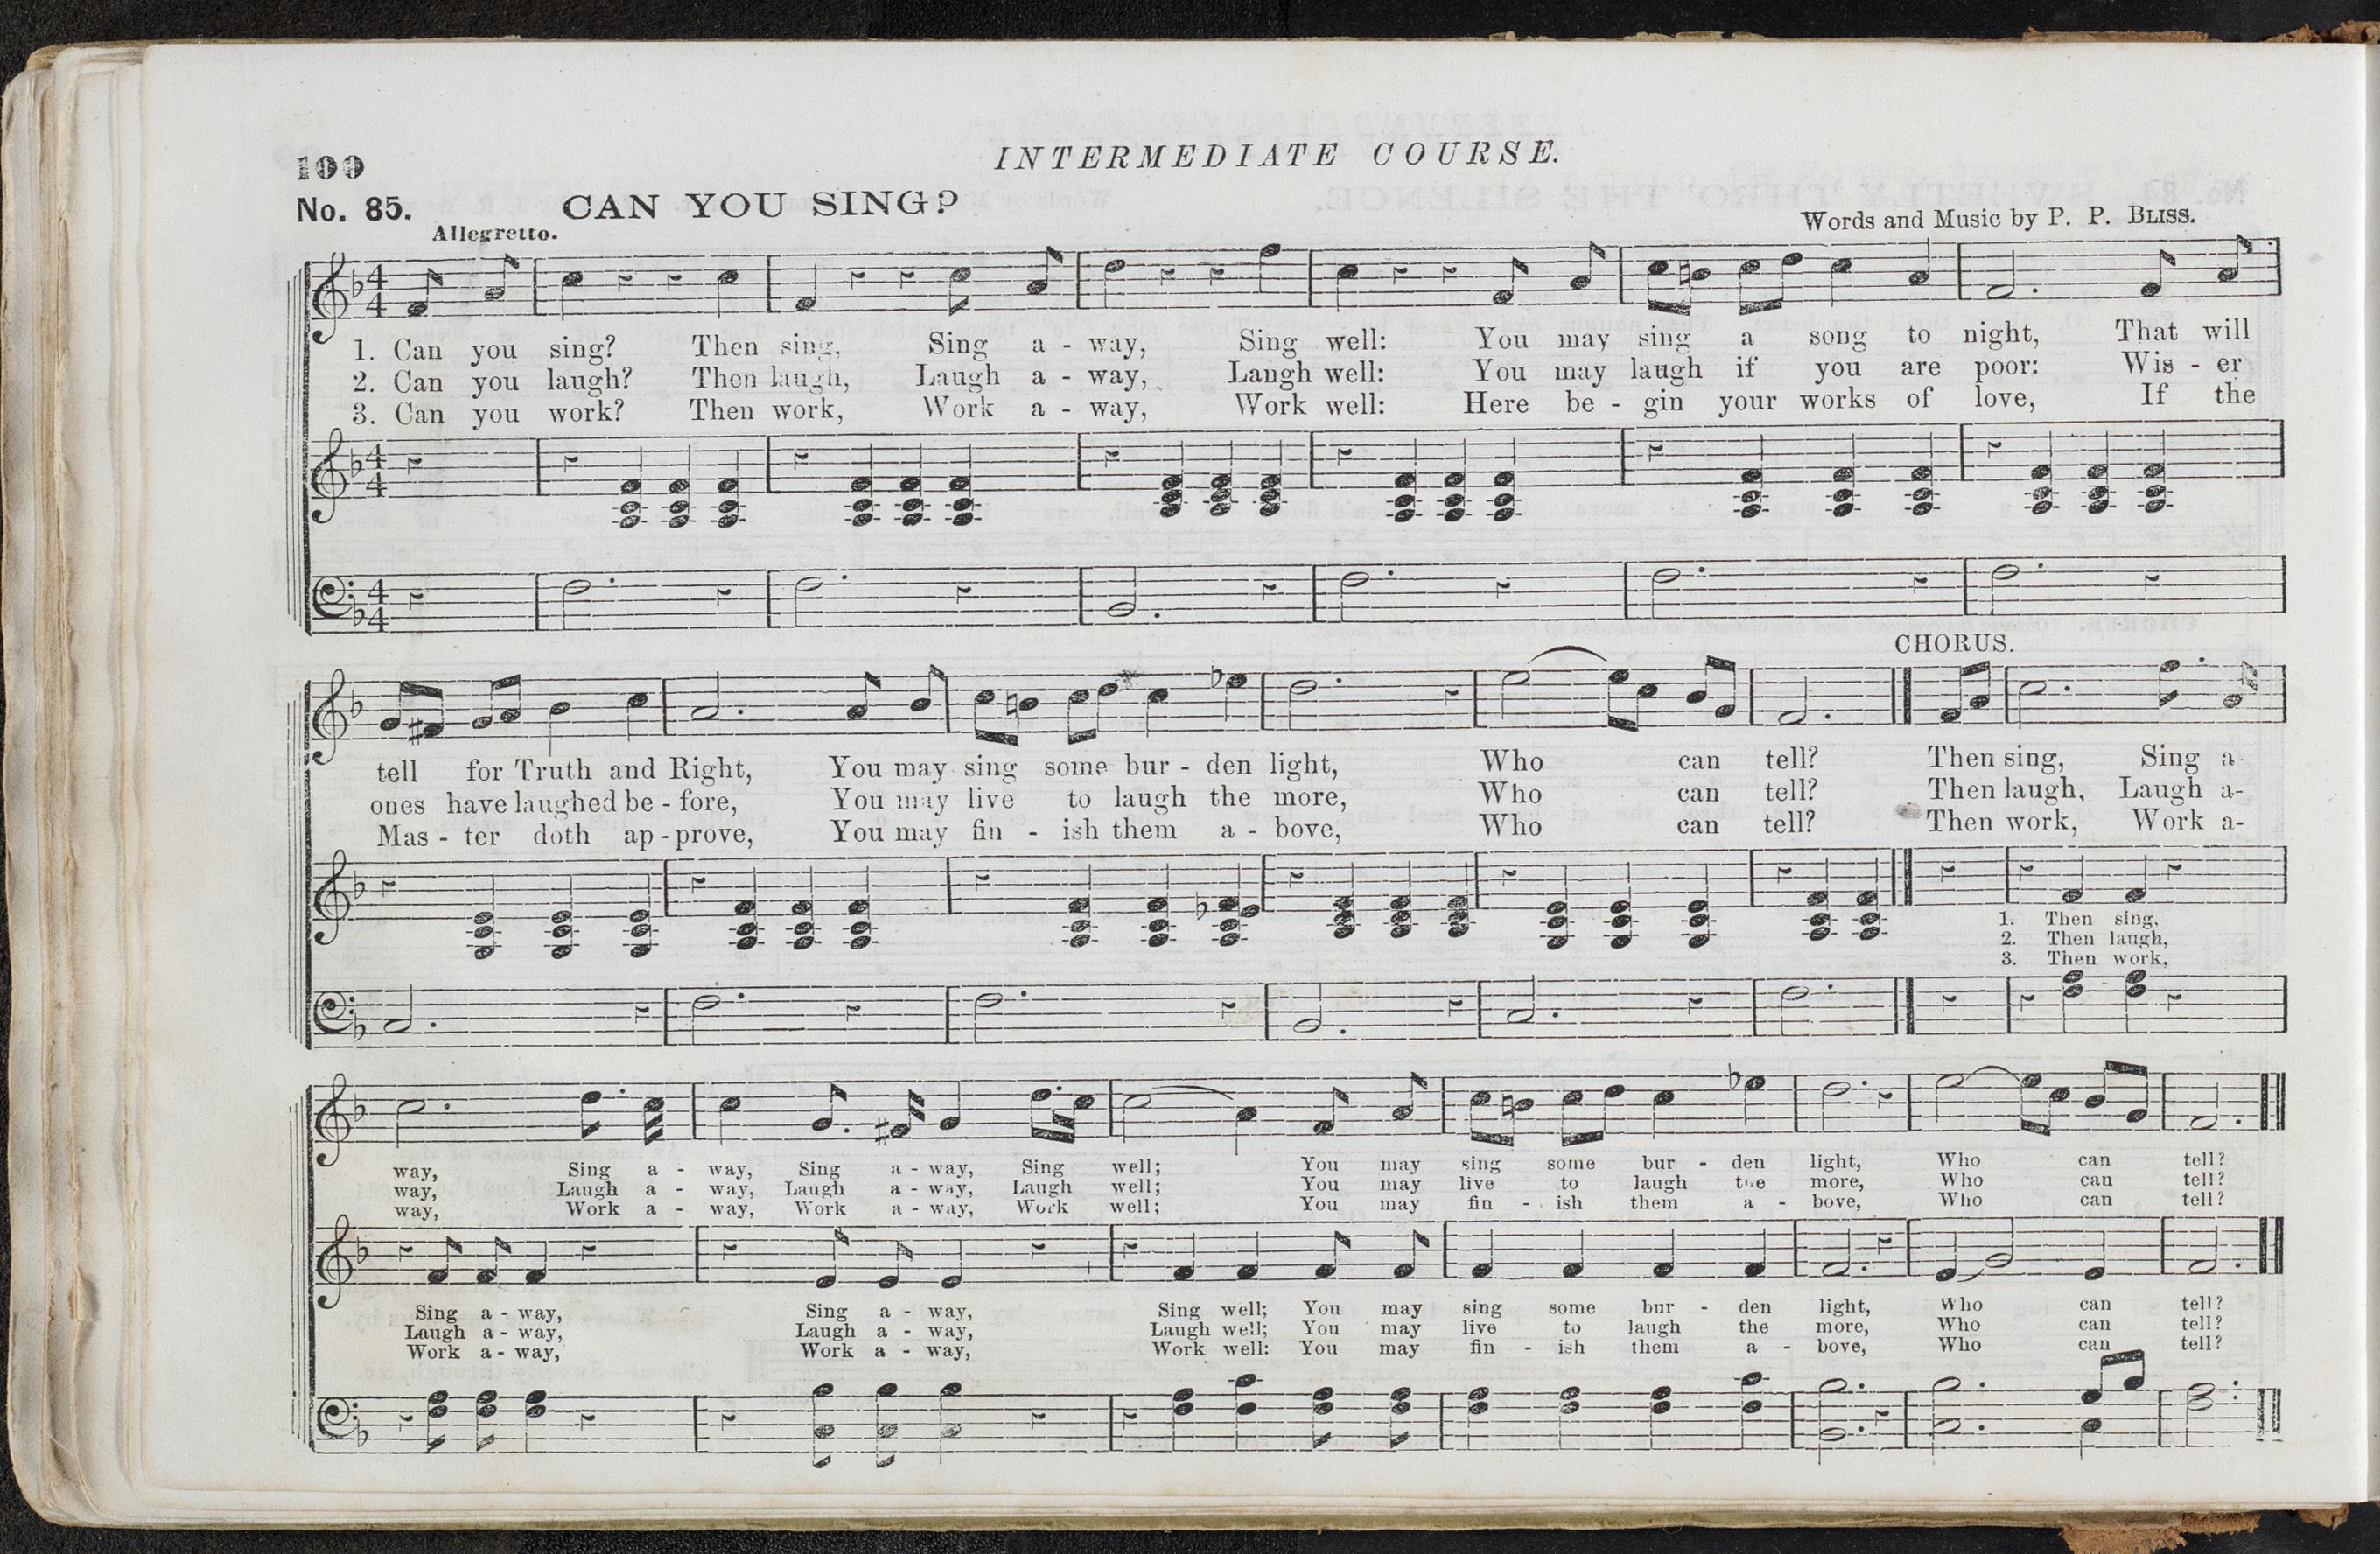 100
INTERMEDIATE COURSE.
No. 85. CAN YOU SING?
Words and Music by P. P. BLISS.
Allegretto.
1. Can you sing? Then sing, Sing a - way, Sing well: You may sing a song to night, That will
2. Can you laugh? Then laugh, Laugh a - way, Laugh well: You may laugh if you are poor: Wis - er
3. Can you work? Then work, Work a - way, Work well: Here be - gin your works of love, If the
CHORUS.
tell for Truth and Right, You may sing some bur - den light, Who can tell? Then sing, Sing a-
ones have laughed be - fore, You may live to laugh the more, Who can tell? Then laugh, Laugh a-
Mas - ter doth ap - prove, You may fin - ish them a - bove, Who can tell? Then work, Work a-
1. Then sing,
2. Then laugh,
3. Then work,
way, Sing a - way, Sing a - way, Sing well; You may sing some bur - den light, Who can tell?
way, Laugh a - way, Laugh a - way, Laugh well; You may live to laugh the more, Who can tell?
way, Work a - way, Work a - way, Work well; You may fin - ish them a - bove, Who can tell?
Sing a - way, Sing a - way, Sing well; You may sing some bur - den light, Who can tell?
Laugh a - way, Laugh a - way, Laugh well; You may live to laugh the more, Who can tell?
Work a - way, Work a - way, Work well: You may fin - ish them a - bove, Who can tell?